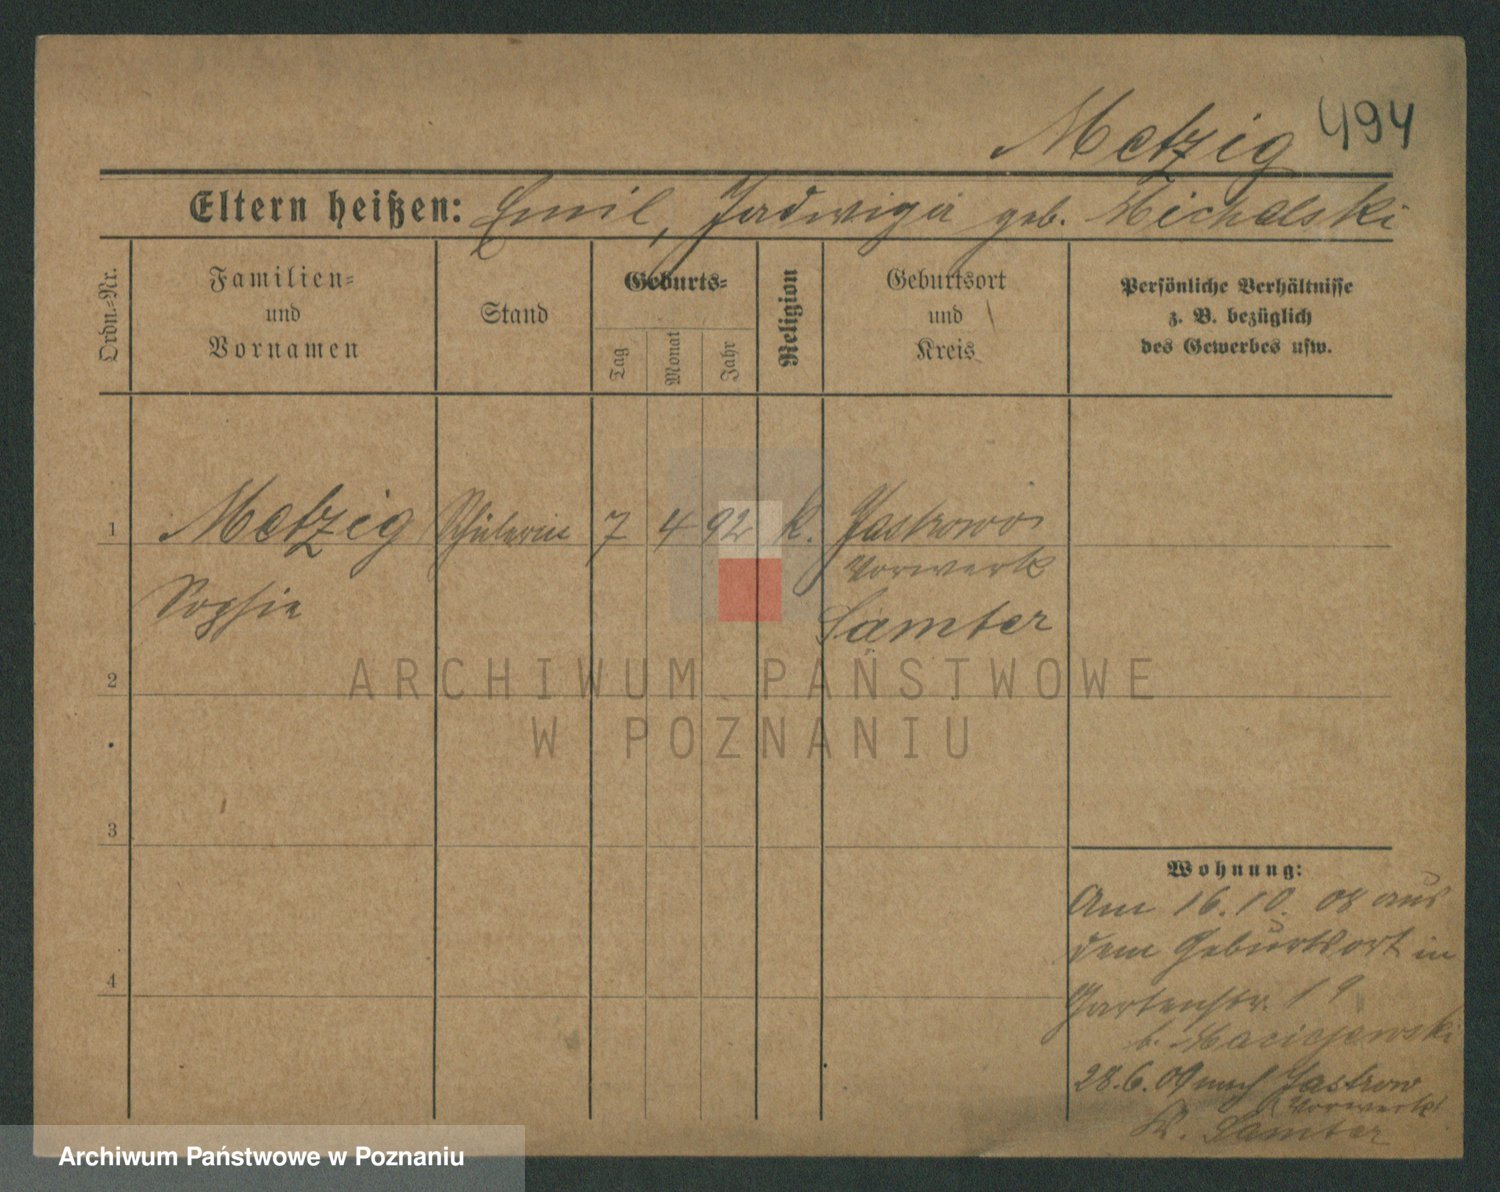 Metzig 494
Eltern heißen: Emil, Jadwiga geb. Michalski
Ordn.-Nr.
Familien-
und
Vornamen
Stand
Geburts-
Tag
Monat
Jahr
Religion
Geburtsort
und
Kreis
Persönliche Verhältnisse
z. B. bezüglich
des Gewerbes usw.
1 Metzig Schülerin 7 4 92 k. Jastrowo
Vorwerk
Sophie
Samter
2
3
4
Wohnung:
Am 16.10.08 aus
dem Geburtsort in
Gartenstr. 19
b. Maciejewski
28.6.09 nach Jastrow
Vorwerk
Kr. Samter
ARCHIWUM PAŃSTWOWE
W POZNANIU
Archiwum Państwowe w Poznaniu